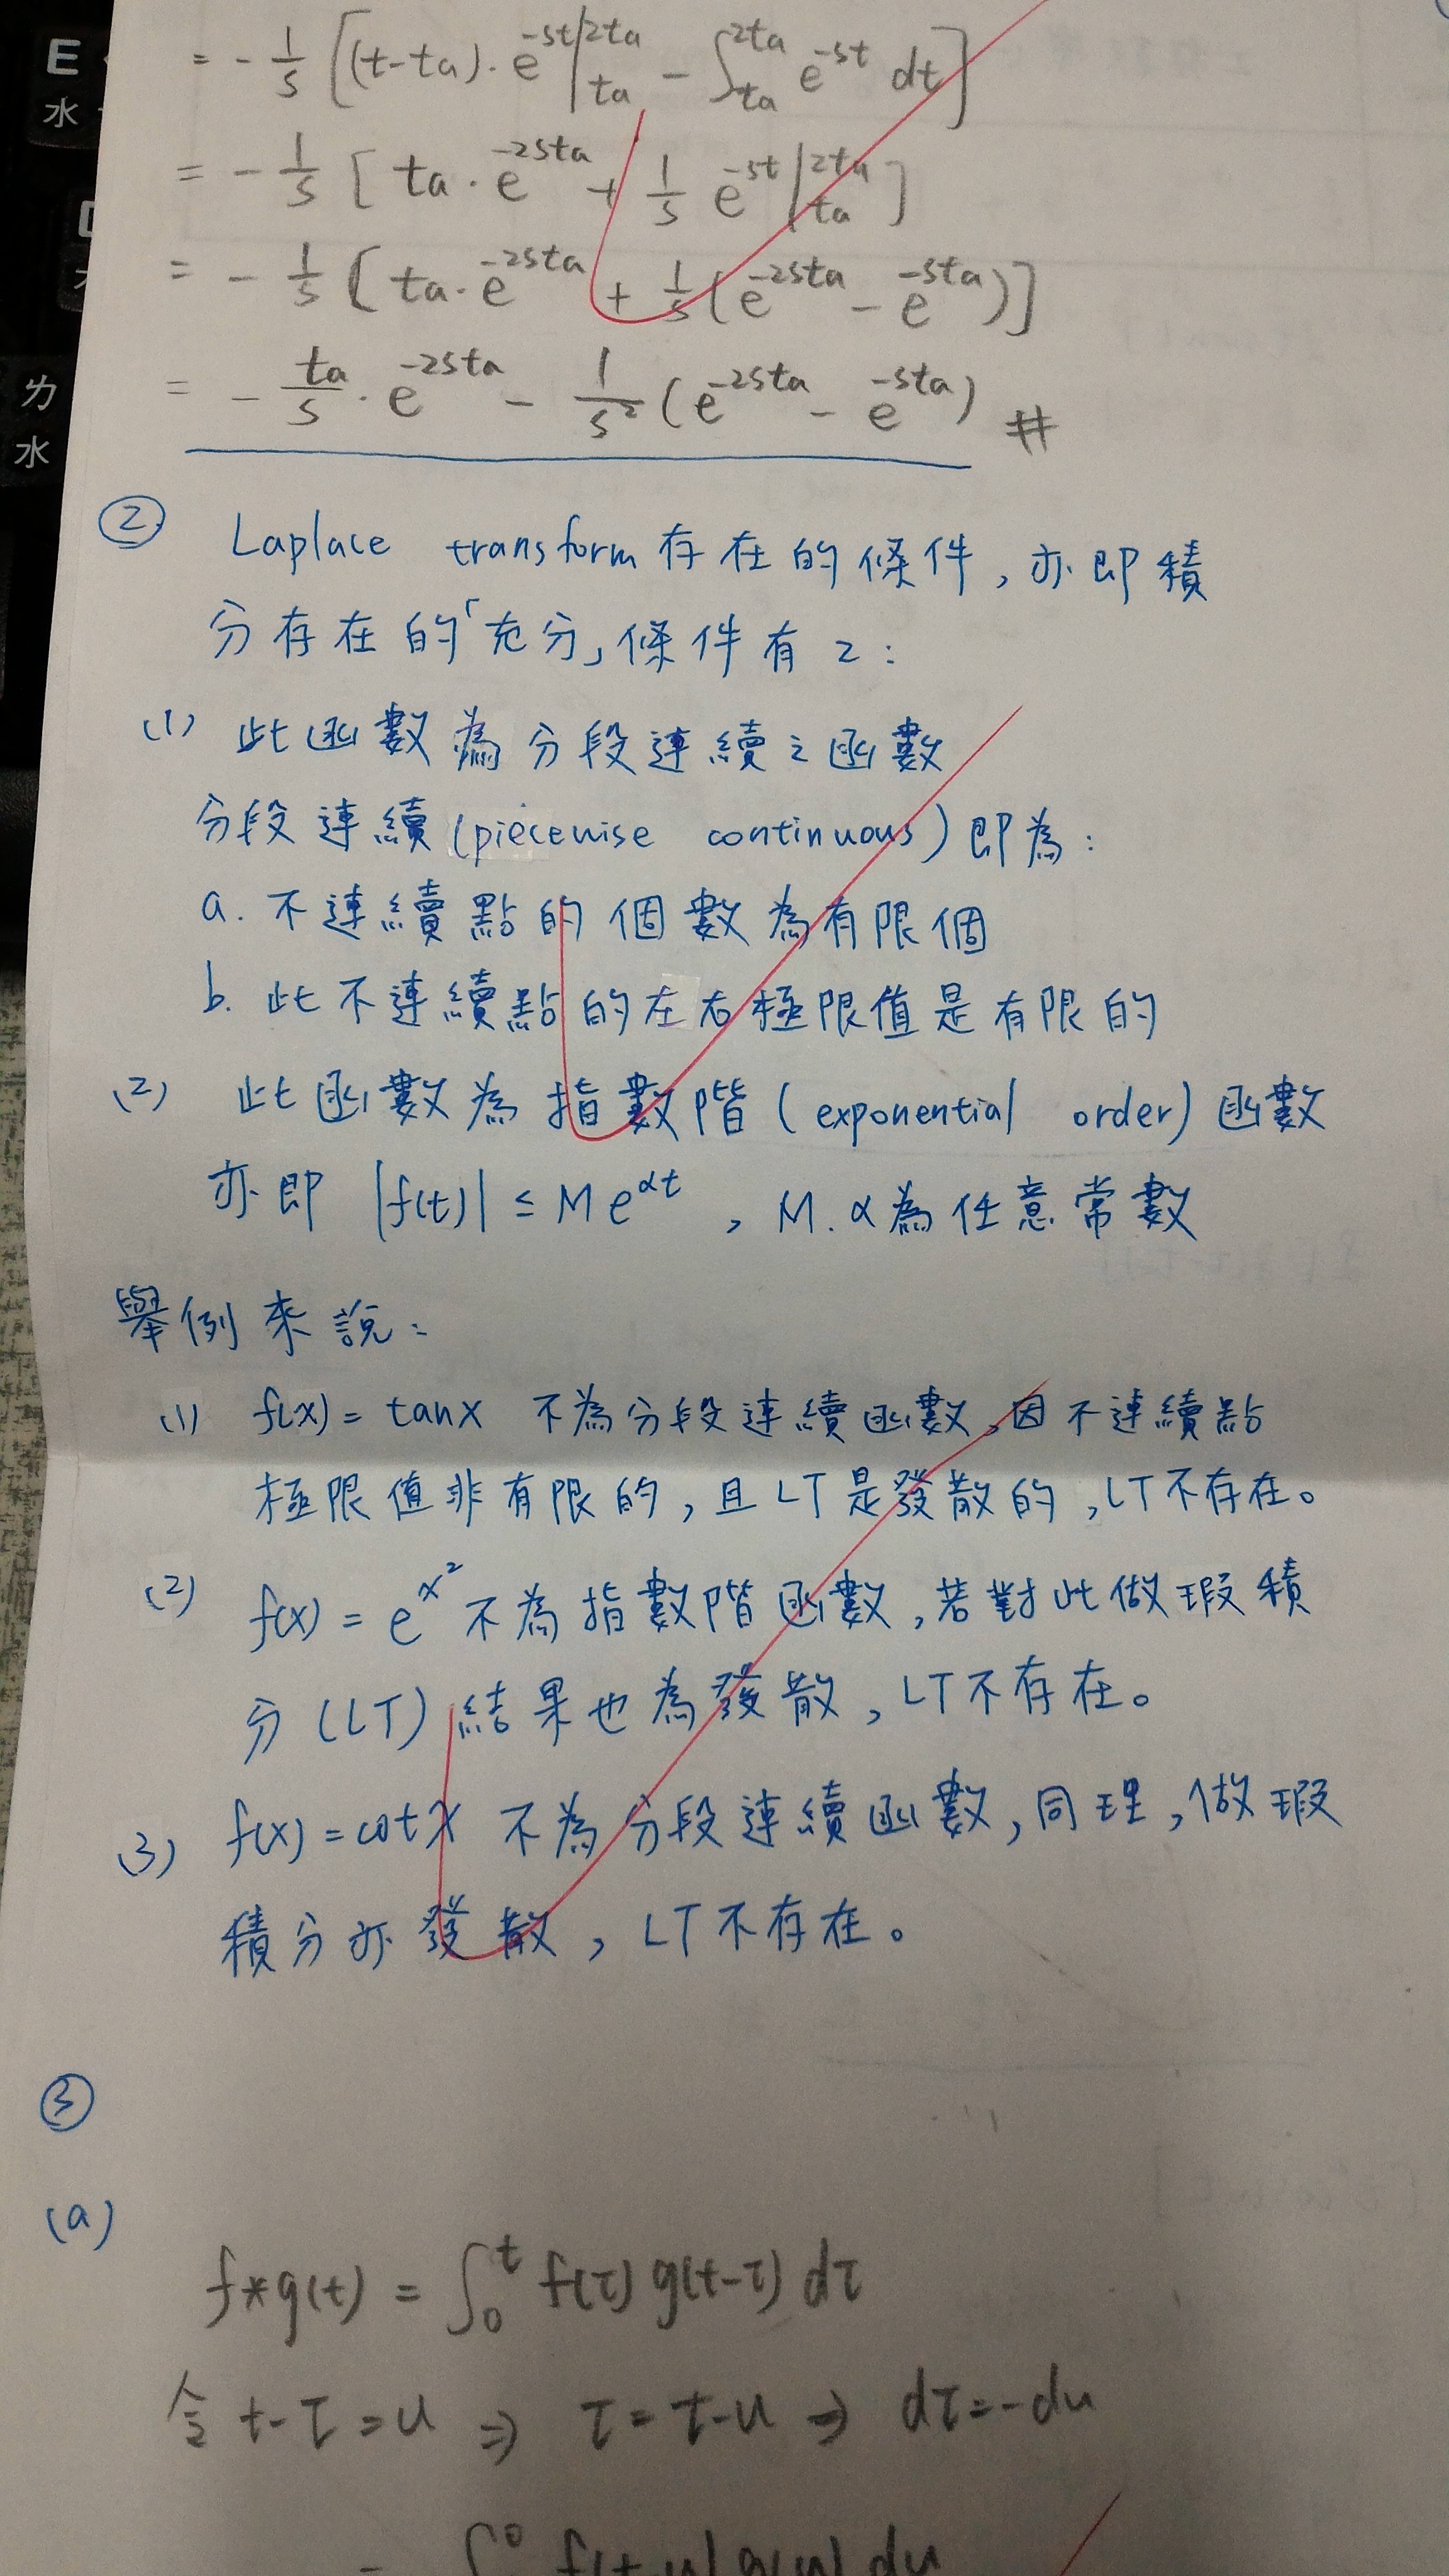 E
水
力
水
= - 1/s [(t-ta)·e^{-st}|_{ta}^{2ta} - ∫_{ta}^{2ta} e^{-st} dt]
= - 1/s [ta·e^{-2sta} + 1/s e^{-st}|_{ta}^{2ta}]
= - 1/s [ta·e^{-2sta} + 1/s (e^{-2sta} - e^{-sta})]
= - ta/s · e^{-2sta} - 1/s² (e^{-2sta} - e^{-sta}) #
② Laplace transform 存在的條件,亦即積
分存在的「充分」條件有2:
(1) 此函數為分段連續之函數
分段連續(piecewise continuous)即為:
a. 不連續點的個數為有限個
b. 此不連續點的左右極限值是有限的
(2) 此函數為指數階(exponential order)函數
亦即 |f(t)| ≤ Me^{αt}, M.α為任意常數
舉例來說:
(1) f(x) = tanx 不為分段連續函數,因不連續點
極限值非有限的,且LT是發散的,LT不存在。
(2) f(x) = e^{x²} 不為指數階函數,若對此做瑕積
分(LT)結果也為發散,LT不存在。
(3) f(x) = cotx 不為分段連續函數,同理,做瑕
積分亦發散,LT不存在。
③
(a)
f*g(t) = ∫_0^t f(τ)g(t-τ)dτ
令 t-τ=u ⇒ τ=t-u ⇒ dτ=-du